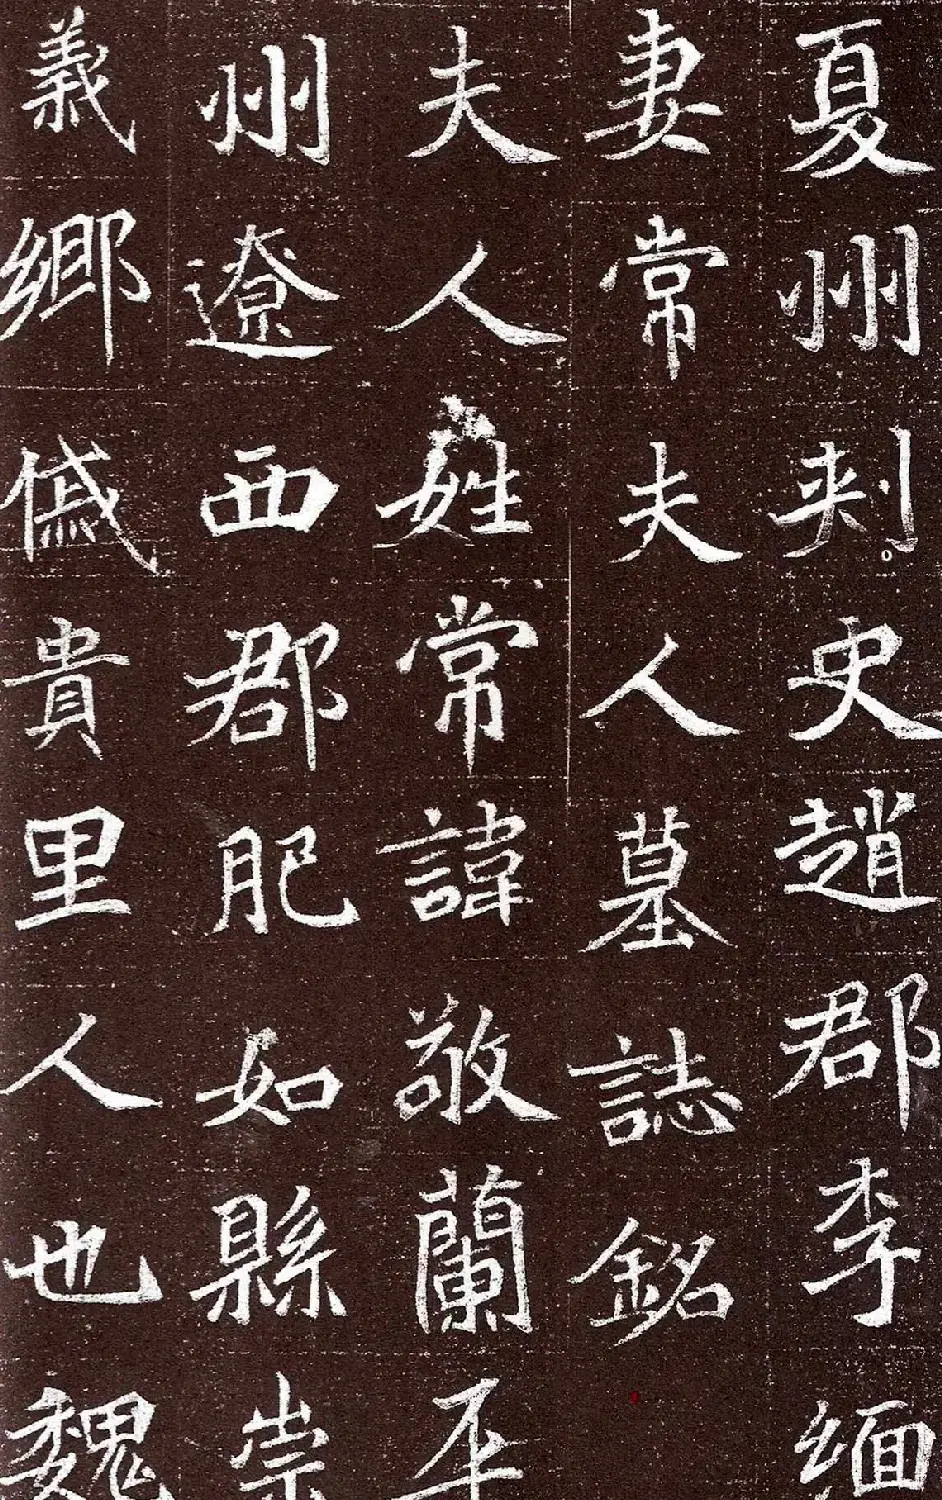 夏州刺史趙郡李緬
妻常夫人墓誌銘
夫人姓常諱敬蘭平
州遼西郡肥如縣崇
義鄉戚貴里人也魏